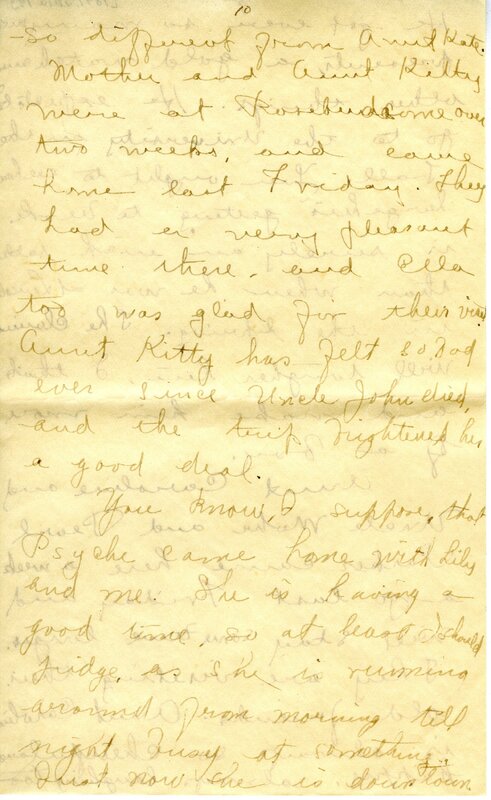 10
-so different from Aunt Kate.
Mother and Aunt Kitty
were at Rosebud some over
two weeks, and came
home last Friday. They
had a very pleasant
time there, and Ella
too was glad for their visit
Aunt Kitty has felt so bad
ever since Uncle John died,
and the trip brightened her
a good deal.
You know, I suppose, that
Psyche came home with Lily
and me. She is having a
good time, so at least I should
judge, as she is running
around from morning till
night busy at something.
Just now she is down town